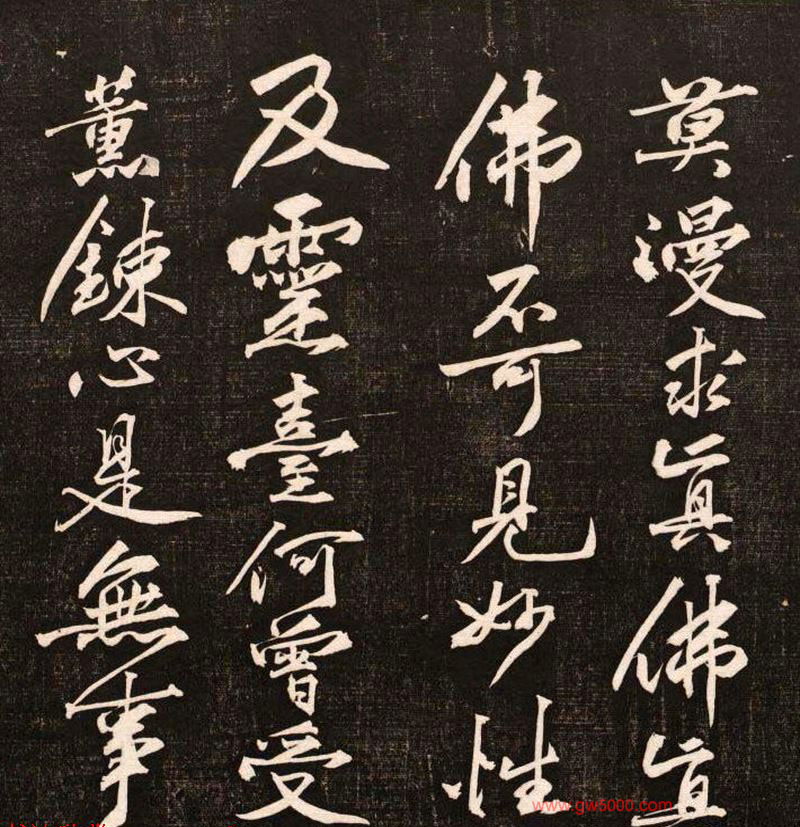 莫漫求真佛真
佛不可見妙性
及靈臺何曾受
薰鍊心是無事
www.gw5000.com